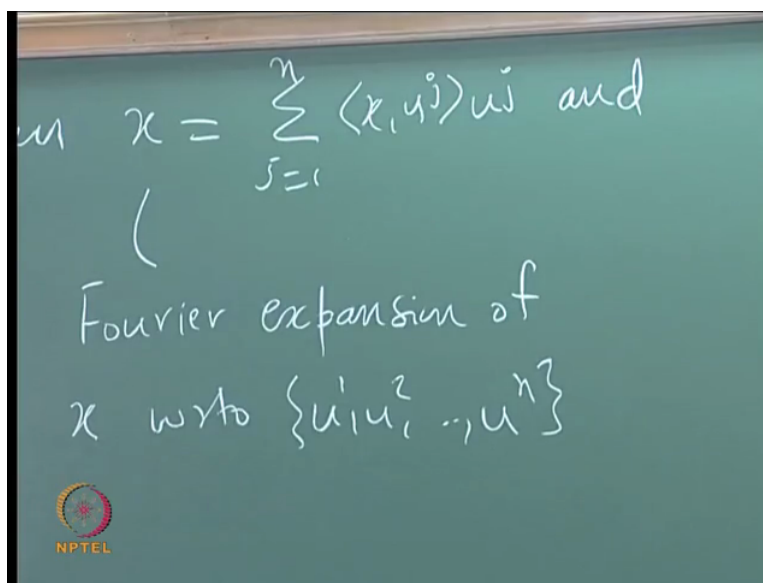 x = \sum_{j=1}^{n} ⟨x, u^j⟩ u^j and
(
Fourier expansion of
x wrto {u^1, u^2, .., u^n}
NPTEL